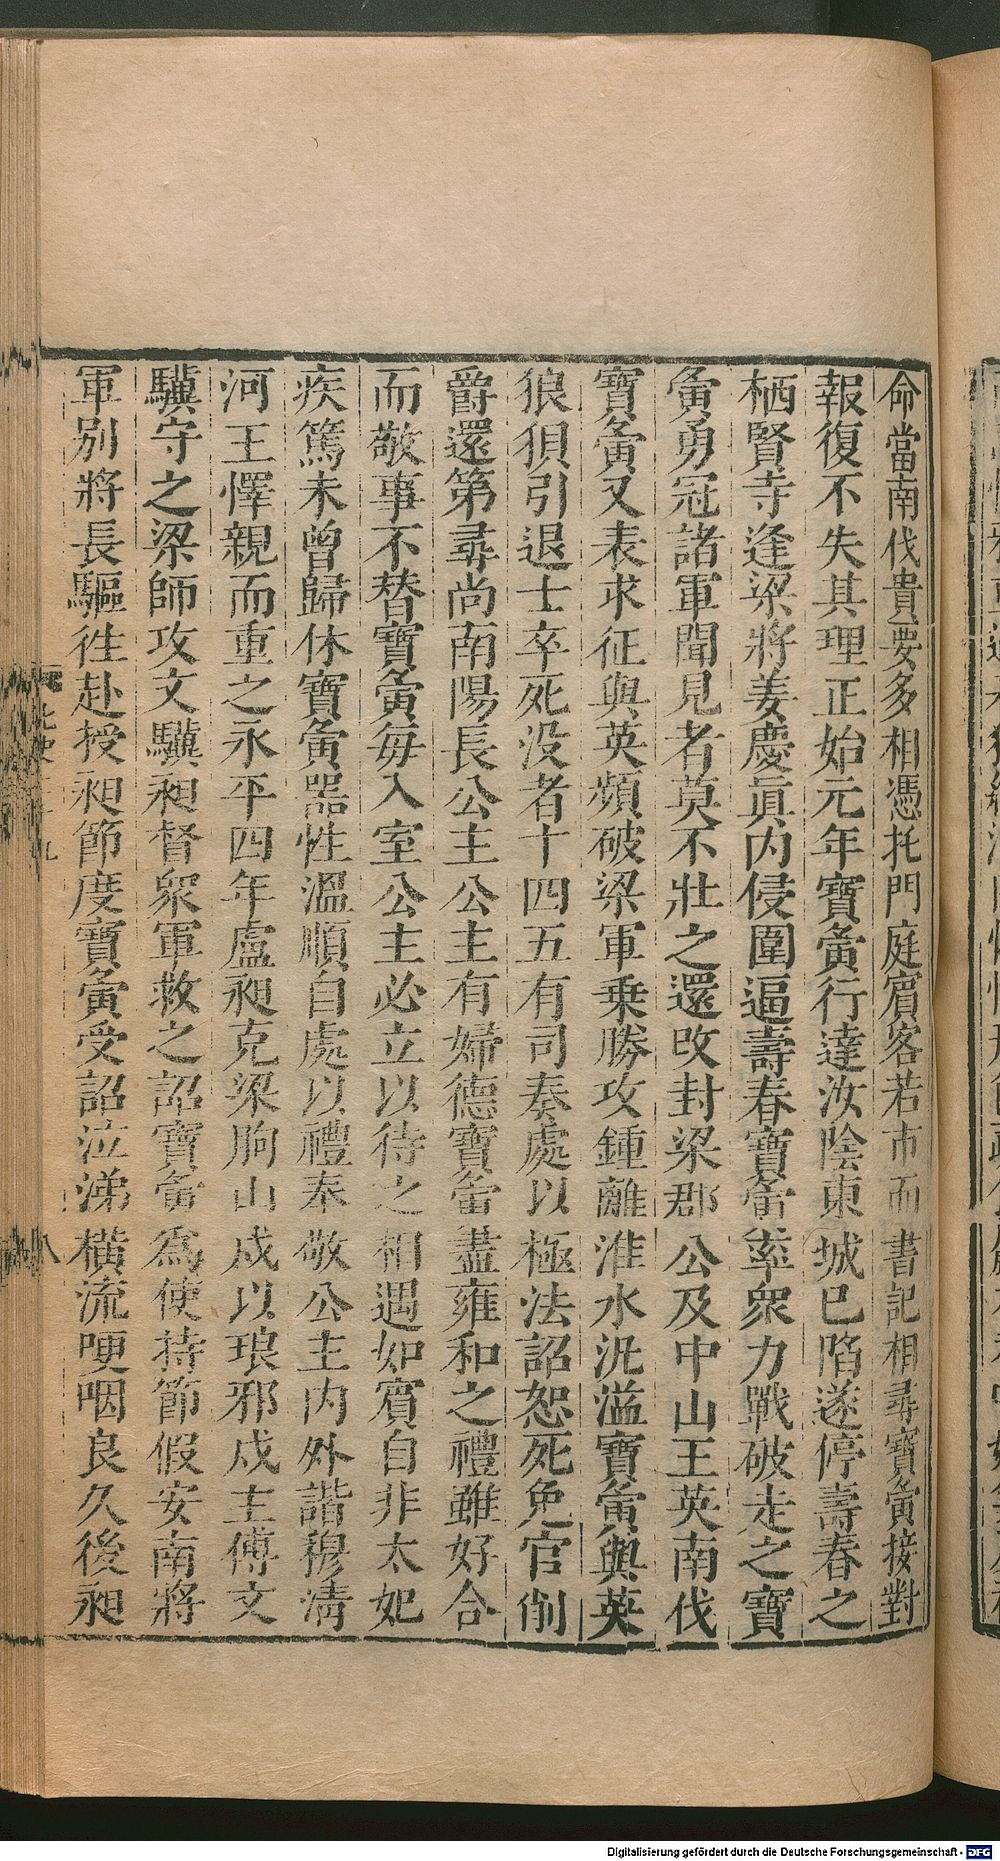 命當南伐貴要多相憑托門庭賓客若市而書記相尋寶夤接對
報復不失其理正始元年寶夤行達汝陰東城已陷遂停壽春之
栖賢寺逢梁將姜慶眞内侵圍逼壽春寶夤率衆力戰破走之寶
夤勇冠諸軍聞見者莫不壯之還改封梁郡公及中山王英南伐
寶夤又表求征與英頻破梁軍乗勝攻鍾離淮水汎溢寶夤與英
狼狽引退士卒死没者十四五有司奏處以極法詔恕死免官削
爵還第尋尚南陽長公主公主有婦德寶夤盡雍和之禮雖好合
而敬事不替寶夤毎入室公主必立以待之相遇如賓自非太妃
疾篤未曾歸休寶夤器性溫順自處以禮奉敬公主内外諧穆清
河王懌親而重之永平四年盧昶克梁朐山戍以琅邪戍主傅文
驥守之梁師攻文驥昶督衆軍救之詔寶夤爲使持節假安南將
軍别將長驅徃赴授昶節度寶夤受詔泣涕横流哽咽良久後昶
八
Digitalisierung gefördert durch die Deutsche Forschungsgemeinschaft - DFG